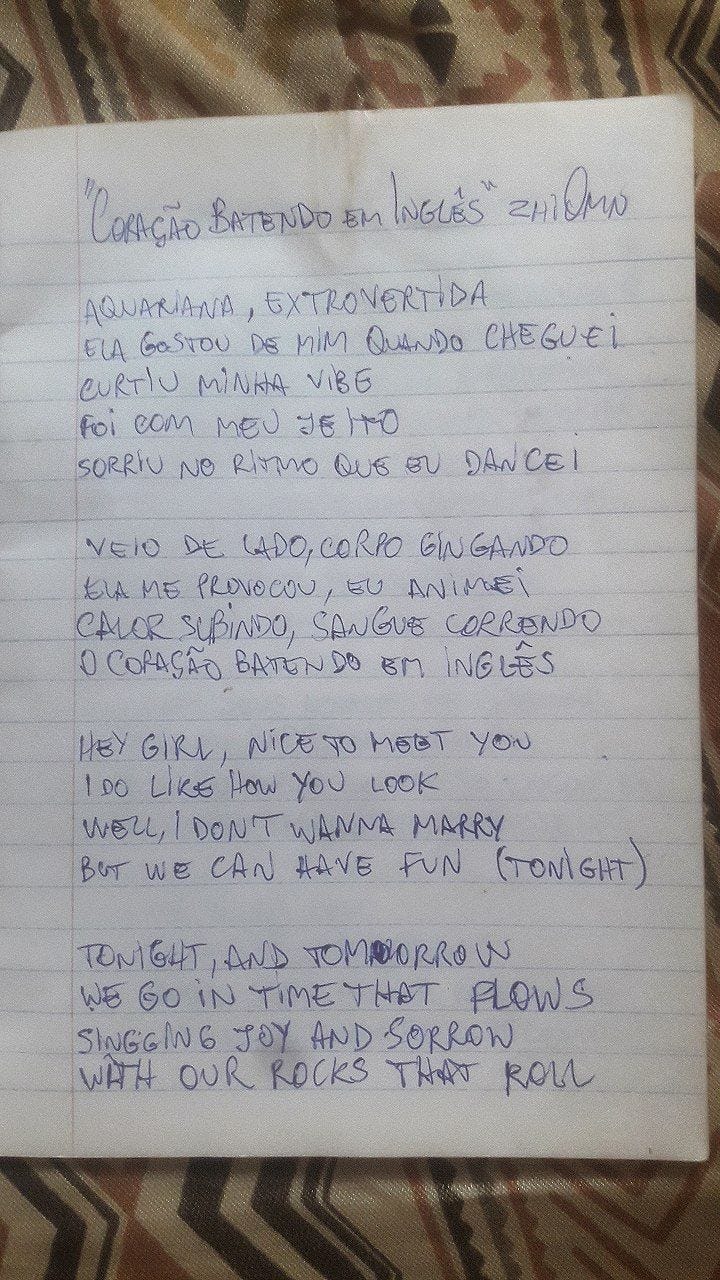 "CORAÇÃO BATENDO EM INGLÊS" ZHIOMN
AQUARIANA, EXTROVERTIDA
ELA GOSTOU DE MIM QUANDO CHEGUEI
CURTIU MINHA VIBE
FOI COM MEU JEITO
SORRIU NO RITMO QUE EU DANCEI
VEIO DE LADO, CORPO GINGANDO
ELA ME PROVOCOU, EU ANIMEI
CALOR SUBINDO, SANGUE CORRENDO
O CORAÇÃO BATENDO EM INGLÊS
HEY GIRL, NICE TO MEET YOU
I DO LIKE HOW YOU LOOK
WELL, I DON'T WANNA MARRY
BUT WE CAN HAVE FUN (TONIGHT)
TONIGHT, AND TOMORROW
WE GO IN TIME THAT FLOWS
SINGGING JOY AND SORROW
WITH OUR ROCKS THAT ROLL